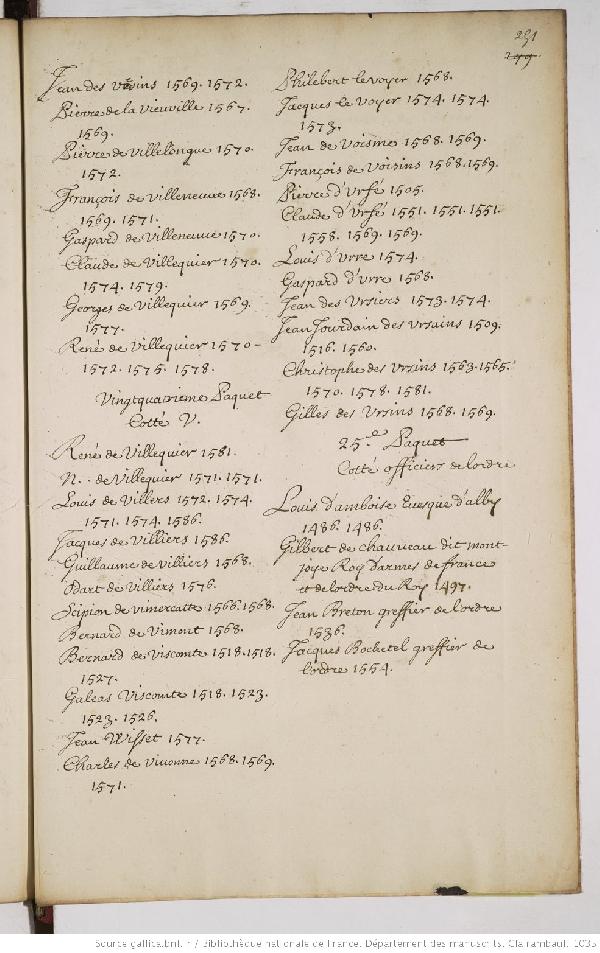 251
299
Jean des ursins 1569. 1572.
Pierre de la vieuville 1567.
1569.
Pierre de Villelongue 1570.
1572.
François de Villeneuue 1568.
1569. 1571.
Gaspard de Villeneuue 1570.
Claude de Villequier 1570.
1574. 1579.
Georges de Villequier 1569.
1577.
René de Villequier 1570-
1572. 1575. 1578.
Vingtquatrieme Paquet
Cotté V.
René de Villequier 1581.
N.. de Villequier 1571. 1571.
Louis de Villers 1572. 1574.
1571. 1574. 1586.
Jacques de Villiers 1586.
Guillaume de Villiers 1568.
Odart de Villiers 1576.
Scipion de vimercatte 1566. 1568.
Bernard de Vimont 1568.
Bernard de Visconte 1518. 1518.
1527.
Galeas Visconte 1518. 1523.
1523. 1526.
Jean Wisset 1577.
Charles de Vivonne 1568. 1569.
1571.
Philebert le voyer 1568.
Jacques le Voyer 1574. 1574.
1573.
Jean de Voisme 1568. 1569.
François de Voisins 1568. 1569.
Pierre d'Urfé 1505.
Claude d'Urfé 1551. 1551. 1551.
1558. 1569. 1569.
Louis d'urre 1574.
Gaspard d'urre 1568.
Jean des Ursiers 1573. 1574.
Jean Jourdain des ursains 1509.
1516. 1560.
Christophe des ursins 1563. 1565.
1570. 1578. 1581.
Gilles des Ursins 1568. 1569.
25.e Paquet
Cotté officiers de lordre
Louis Damboise Euesque d'alby
1486. 1486.
Gilbert de chauueau dit mont-
joye Roy Darmes de france
et de lordre du Roy 1497.
Jean Breton greffier de lordre
1536.
Jacques Bochetel greffier de
lordre 1554.
Source gallica.bnf.fr / Bibliothèque nationale de France. Département des manuscrits. Clairambault 1035